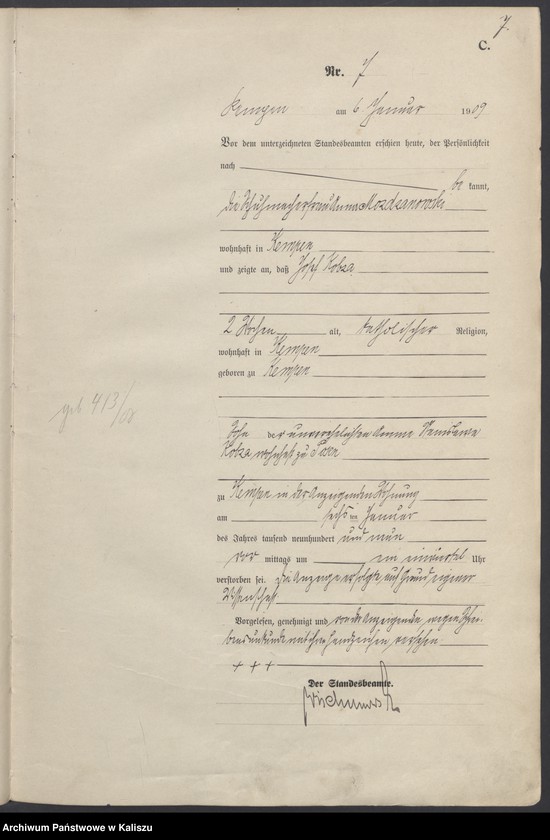 7.
C.
Nr. 7
Kempen am 6 Januar 1909
Vor dem unterzeichneten Standesbeamten erschien heute, der Persönlichkeit
nach
be kannt,
die Schuhmacherfrau Anna Mozdzanowski
wohnhaft in Kempen
und zeigte an, daß Josef Kobza
2 Wochen alt, katholischer Religion,
wohnhaft in Kempen
geboren zu Kempen
geb 413/08
Sohn der unverehelichten Amme
Kobza wohnhaft zu Posen
zu Kempen in der Anzeigenden Wohnung
am sechsten Januar
des Jahres tausend neunhundert und neun
vor mittags um ein einviertel Uhr
verstorben sei. Die Anzeige erfolgte auf Grund eigener
Wissenschaft.
Vorgelesen, genehmigt und von der Anzeigenden wegen Schrei-
bensunkunde mit ihren Handzeichen versehen
+ + +
Der Standesbeamte.
Archiwum Państwowe w Kaliszu